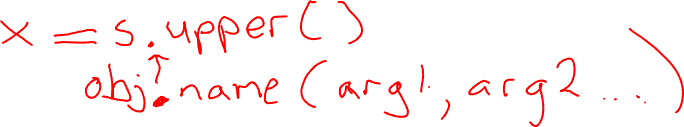 x = s.upper()
obj.name(arg1, arg2 ...)